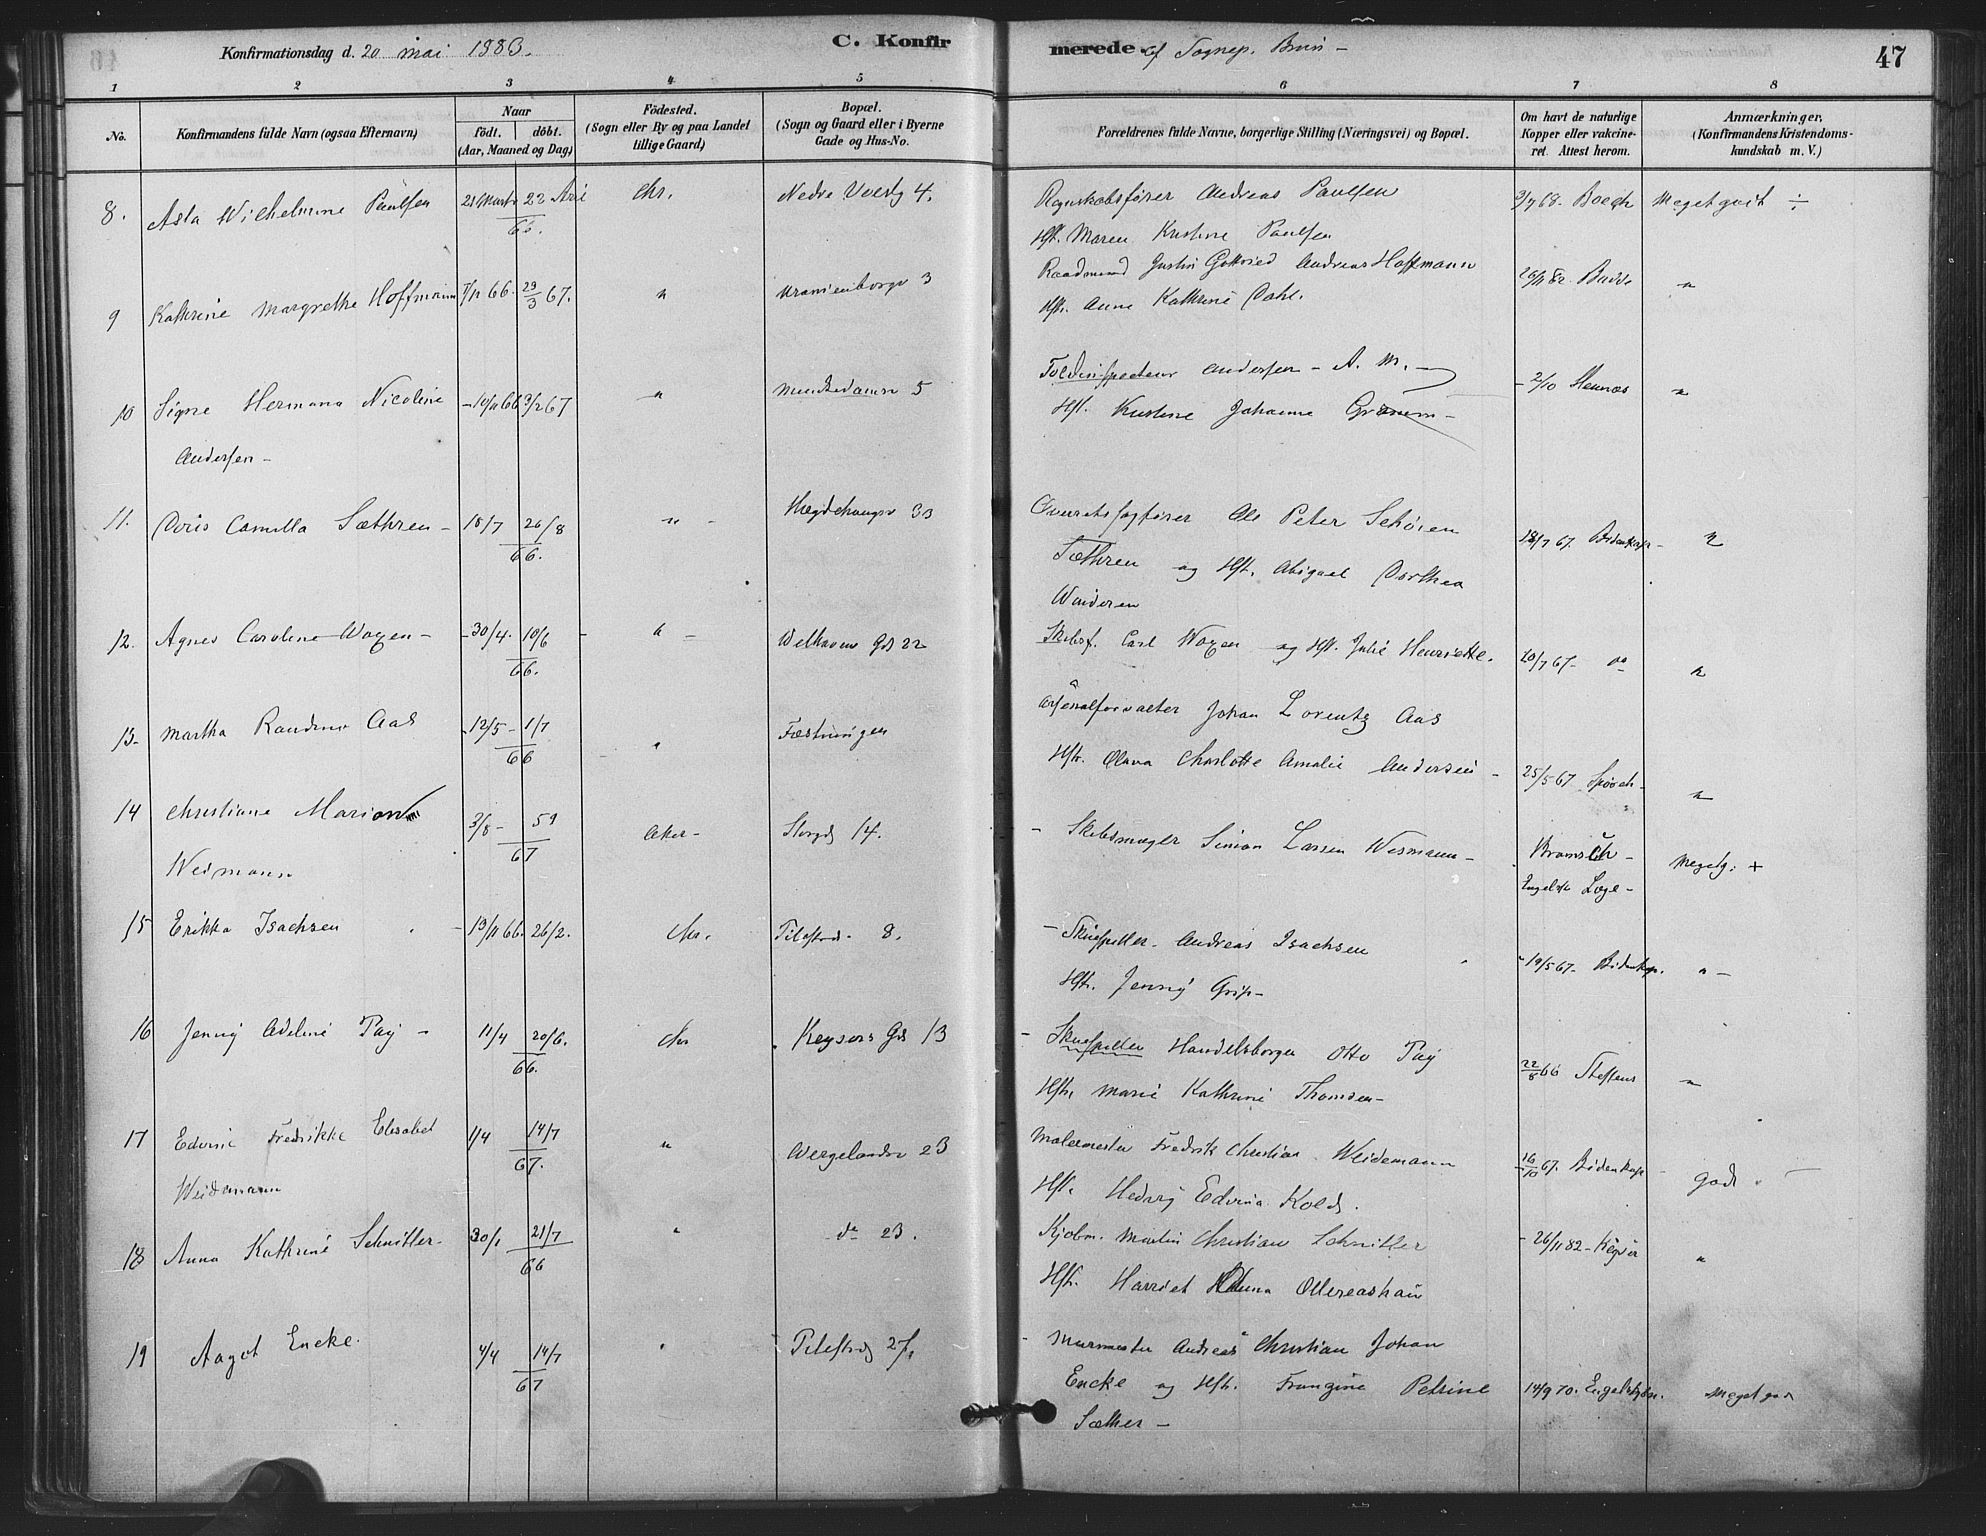 Konfirmationsdag d. 20 mai 1883.
C. Konfirmerede. af Sognep. Bruun -
47
1 2 3 4 5 6 7 8
No.
Konfirmandens fulde Navn (ogsaa Efternavn)
Naar
födt. döbt.
(Aar, Maaned og Dag)
Födested.
(Sogn eller By og paa Landet
tillige Gaard)
Bopæl.
(Sogn og Gaard eller i Byerne
Gade og Hus-No.
Forældrenes fulde Navne, borgerlige Stilling (Næringsvei) og Bopæl.
Om havt de naturlige
Kopper eller vakcine-
ret. Attest herom.
Anmærkninger,
(Konfirmandens Kristendoms-
kundskab m. V.)
8. Asta Wilhelmine Paulsen 21 Marts 22 66. Chr. Nedre Voldg 4. Regnskabsfører Andreas Paulsen 3/7 68. Boeck Meget godt ÷
Hst. Maren Kristine Paulsen
9 Kathrine Margrethe Hoffmann 7/11 66. 29/3 67. " Uranienborgv 3 Raadmand Justin Gottfried Andreas Hoffmann 26/11 82. Budde "
Hst. Anne Kathrine Dahl.
10 Signe Hermana Nicoline - 10/11 66 3/2 67 " Munkedamsv 5 Toldinspecteur Andersen - A. M. - - 2/10 "
Andersen - Hst. Kristine Johanne
11. Doris Camilla Sæthren - 18/7 26/8 66. " - Hægdehaugsv 33 Overretssagfører Ole Peter Schøien 18/7 67. Bidenkap - "
Sæthren og Hst. Abigael Dorthea
12. Agnes Caroline Woxen - - 30/4. 10/6 66. " - Welhavens Gd 22 Skibsf. Carl Woxen og Hst. Julie Henriette. 20/7 67 - do "
13- Martha Aas - 12/5 - 1/7 66 " Fæstningen Arsenalforvalter Johan Lorentz Aas
Hstr. Olava Charlotte Amalie Andersen - 25/5 67 "
14 Christiane Marion Wesmann 3/8 - 5 9 67 Aker - Storgd 14. - Skibsmægler Simon Larsen Wesmann - Engelsk Læge - Megetg. +
15 Erikka Isachsen - 13/11 66. 26/2. Chr. Pilestrd. 8. - Skuespiller. Andreas Isachsen - 19/5 67 - Bidenkap. " -
Hstr. Jenny Grip -
16 Jenny Adeline Pay - 11/4 20/6. 66. Chr . Keysers Gd 13 - Skuespiller Handelsborger Otto Pay 22/8 66 Steffens "
Hstr. Marie Kathrine Thomsen -
17 Edvine Fredrikke Elisabet 1/4 14/7 67. " Wergelandsv 23 Malermester Fredrik Christian Weidemann - 16/10 67. Bidenkap - godt. -
Weidemann Hst. Hedvig Edvina Kolds.
18 Anna Kathrine Schnitler - 30/1 21/7 66 " do 23. Kjøbm. Martin Christian Schnitler - 26/11 82 - "
Hst. Harriet
19 Aagot Encke. 4/4 14/7 67 " Pilestrd 27. - Murmester Andreas Christian Johan
Encke og Hstr. Frangine Petrine 14/9 70. Meget godt
Sæther -